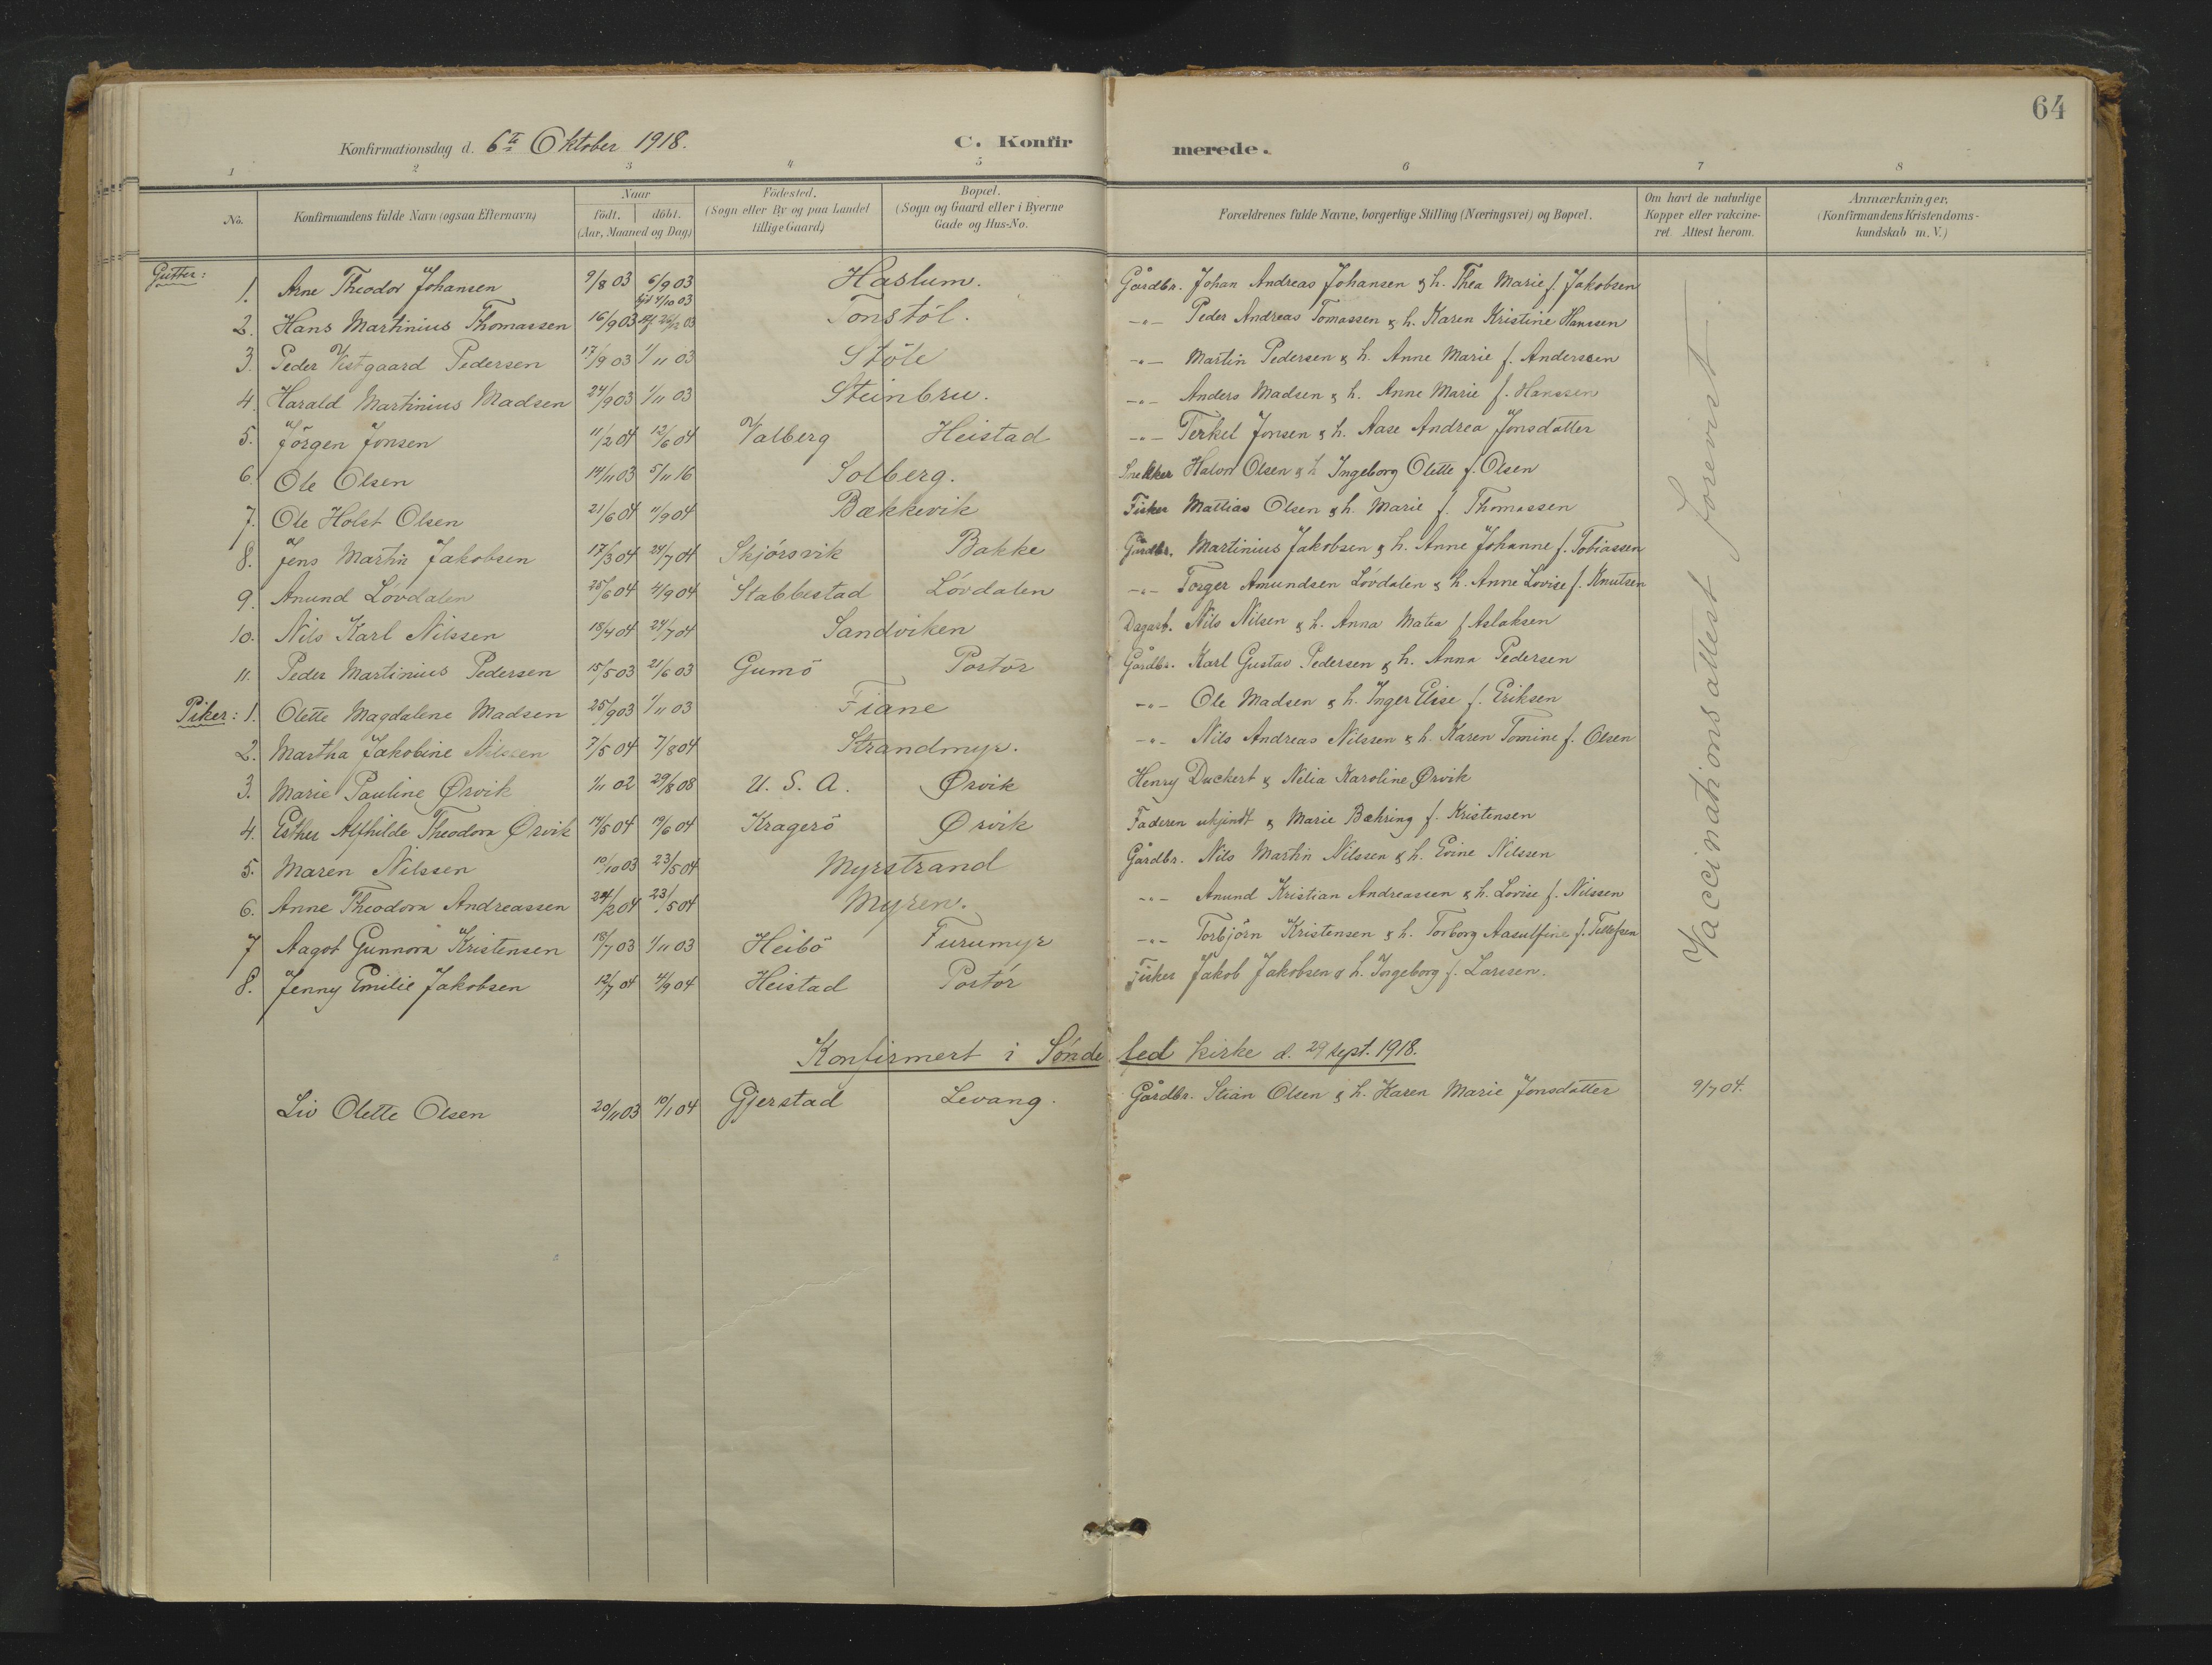 64
Konfirmationsdag d. 6te Oktober 1918. C. Konfirmerede.
1 2 3 4 5 6 7 8
No. Konfirmandens fulde Navn (ogsaa Efternavn) Naar födt. döbt. (Aar, Maaned og Dag) Födested. (Sogn eller By og paa Landet tillige Gaard) Bopæl. (Sogn og Gaard eller i Byerne Gade og Hus-No. Forældrenes fulde Navne, borgerlige Stilling (Næringsvei) og Bopæl. Om havt de naturlige Kopper eller vakcineret. Attest herom. Anmærkninger. (Konfirmandens Kristendomskundskab m. V.)
Gutter:
1. Arne Theodor Johansen 9/8 03 6/9 03 Haslum. Gårdbr. Johan Andreas Johansen & h. Thea Marie f. Jakobsen
2. Hans Martinius Thomassen 16/9 03 4/10 03 Tonstöl. -"- Peder Andreas Tomassen & h. Karen Kristine Hanssen
3. Peder Vestgaard Pedersen 17/9 03 1/11 03 Støle -"- Martin Pedersen & h. Anne Marie f. Anderssen
4. Harald Martinius Madsen 24/9 03 1/11 03 Steinbru. -"- Anders Madsen & h. Anne Marie f. Hanssen
5. Jörgen Jonsen 11/2 04 12/6 04 Valberg Heistad -"- Terkel Jonsen & h. Aase Andrea Jonsdatter
6. Ole Olsen 14/11 03 5/11 16 Solberg. Snekker Halvor Olsen & h. Ingeborg Olette f. Olsen
7. Ole Holst Olsen 21/6 04 11/9 04 Bækkevik Fisker Mattias Olsen & h. Marie f. Thomassen
8. Jens Martin Jakobsen 17/3 04 24/7 04 Skjörsvik Bakke Gårdbr. Martinius Jakobsen & h. Anne Johanne f. Tobiassen
9. Anund Lövdalen 25/6 04 4/9 04 Stabbestad Lövdalen -"- Torger Amundsen Lövdalen & h. Anne Lovise f. Knutsen
10. Nils Karl Nilssen 18/4 04 24/7 04 Sandviken Dagarb. Nils Nilsen & h. Anna Matea f. Aslaksen
11. Peder Martinius Pedersen 15/5 03 21/6 03 Gumö Portör Gårdbr. Karl Gustav Pedersen & h. Anna Pedersen
Piker: 1. Olette Magdalene Madsen 25/9 03 1/11 03 Fiane -"- Ole Madsen & h. Inger Elise f. Eriksen
2. Martha Jakobine Nilssen 7/5 04 7/8 04 Strandmyr. -"- Nils Andreas Nilssen & h. Karen Tomine f. Olsen
3. Marie Pauline Ørvik 1/11 02 29/8 08 U. S. A. Ørvik Henry Duckert & Nelia Karoline Ørvik
4. Esther Alfhilde Theodora Ørvik 14/5 04 19/6 04 Kragerö Ørvik Faderen ukjendt & Marie Bæhring f. Kristensen
5. Maren Nilssen 10/10 03 23/5 04 Myrstrand Gårdbr. Nils Martin Nilssen & h. Evine Nilssen
6. Anne Theodora Andreassen 24/2 04 23/5 04 Myren. -"- Anund Kristian Andreassen & h. Lovise f. Nilssen
7 Aagot Gunnora Kristensen 18/7 03 1/11 03 Heibö Furumyr -"- Torbjörn Kristensen & h. Torborg Aasulfine f. Tellefsen
8. Jenny Emilie Jakobsen 12/7 04 4/9 04 Heistad Portör Fisker Jakob Jakobsen & h. Ingeborg f. Larssen.
Vaccinationsattest forevist
Konfirmert i Söndeled kirke d. 29 sept. 1918.
Liv Olette Olsen 20/11 03 10/1 04 Gjerstad Levang. Gårdbr. Stian Olsen & h. Karen Marie Jonsdatter 9/7 04.